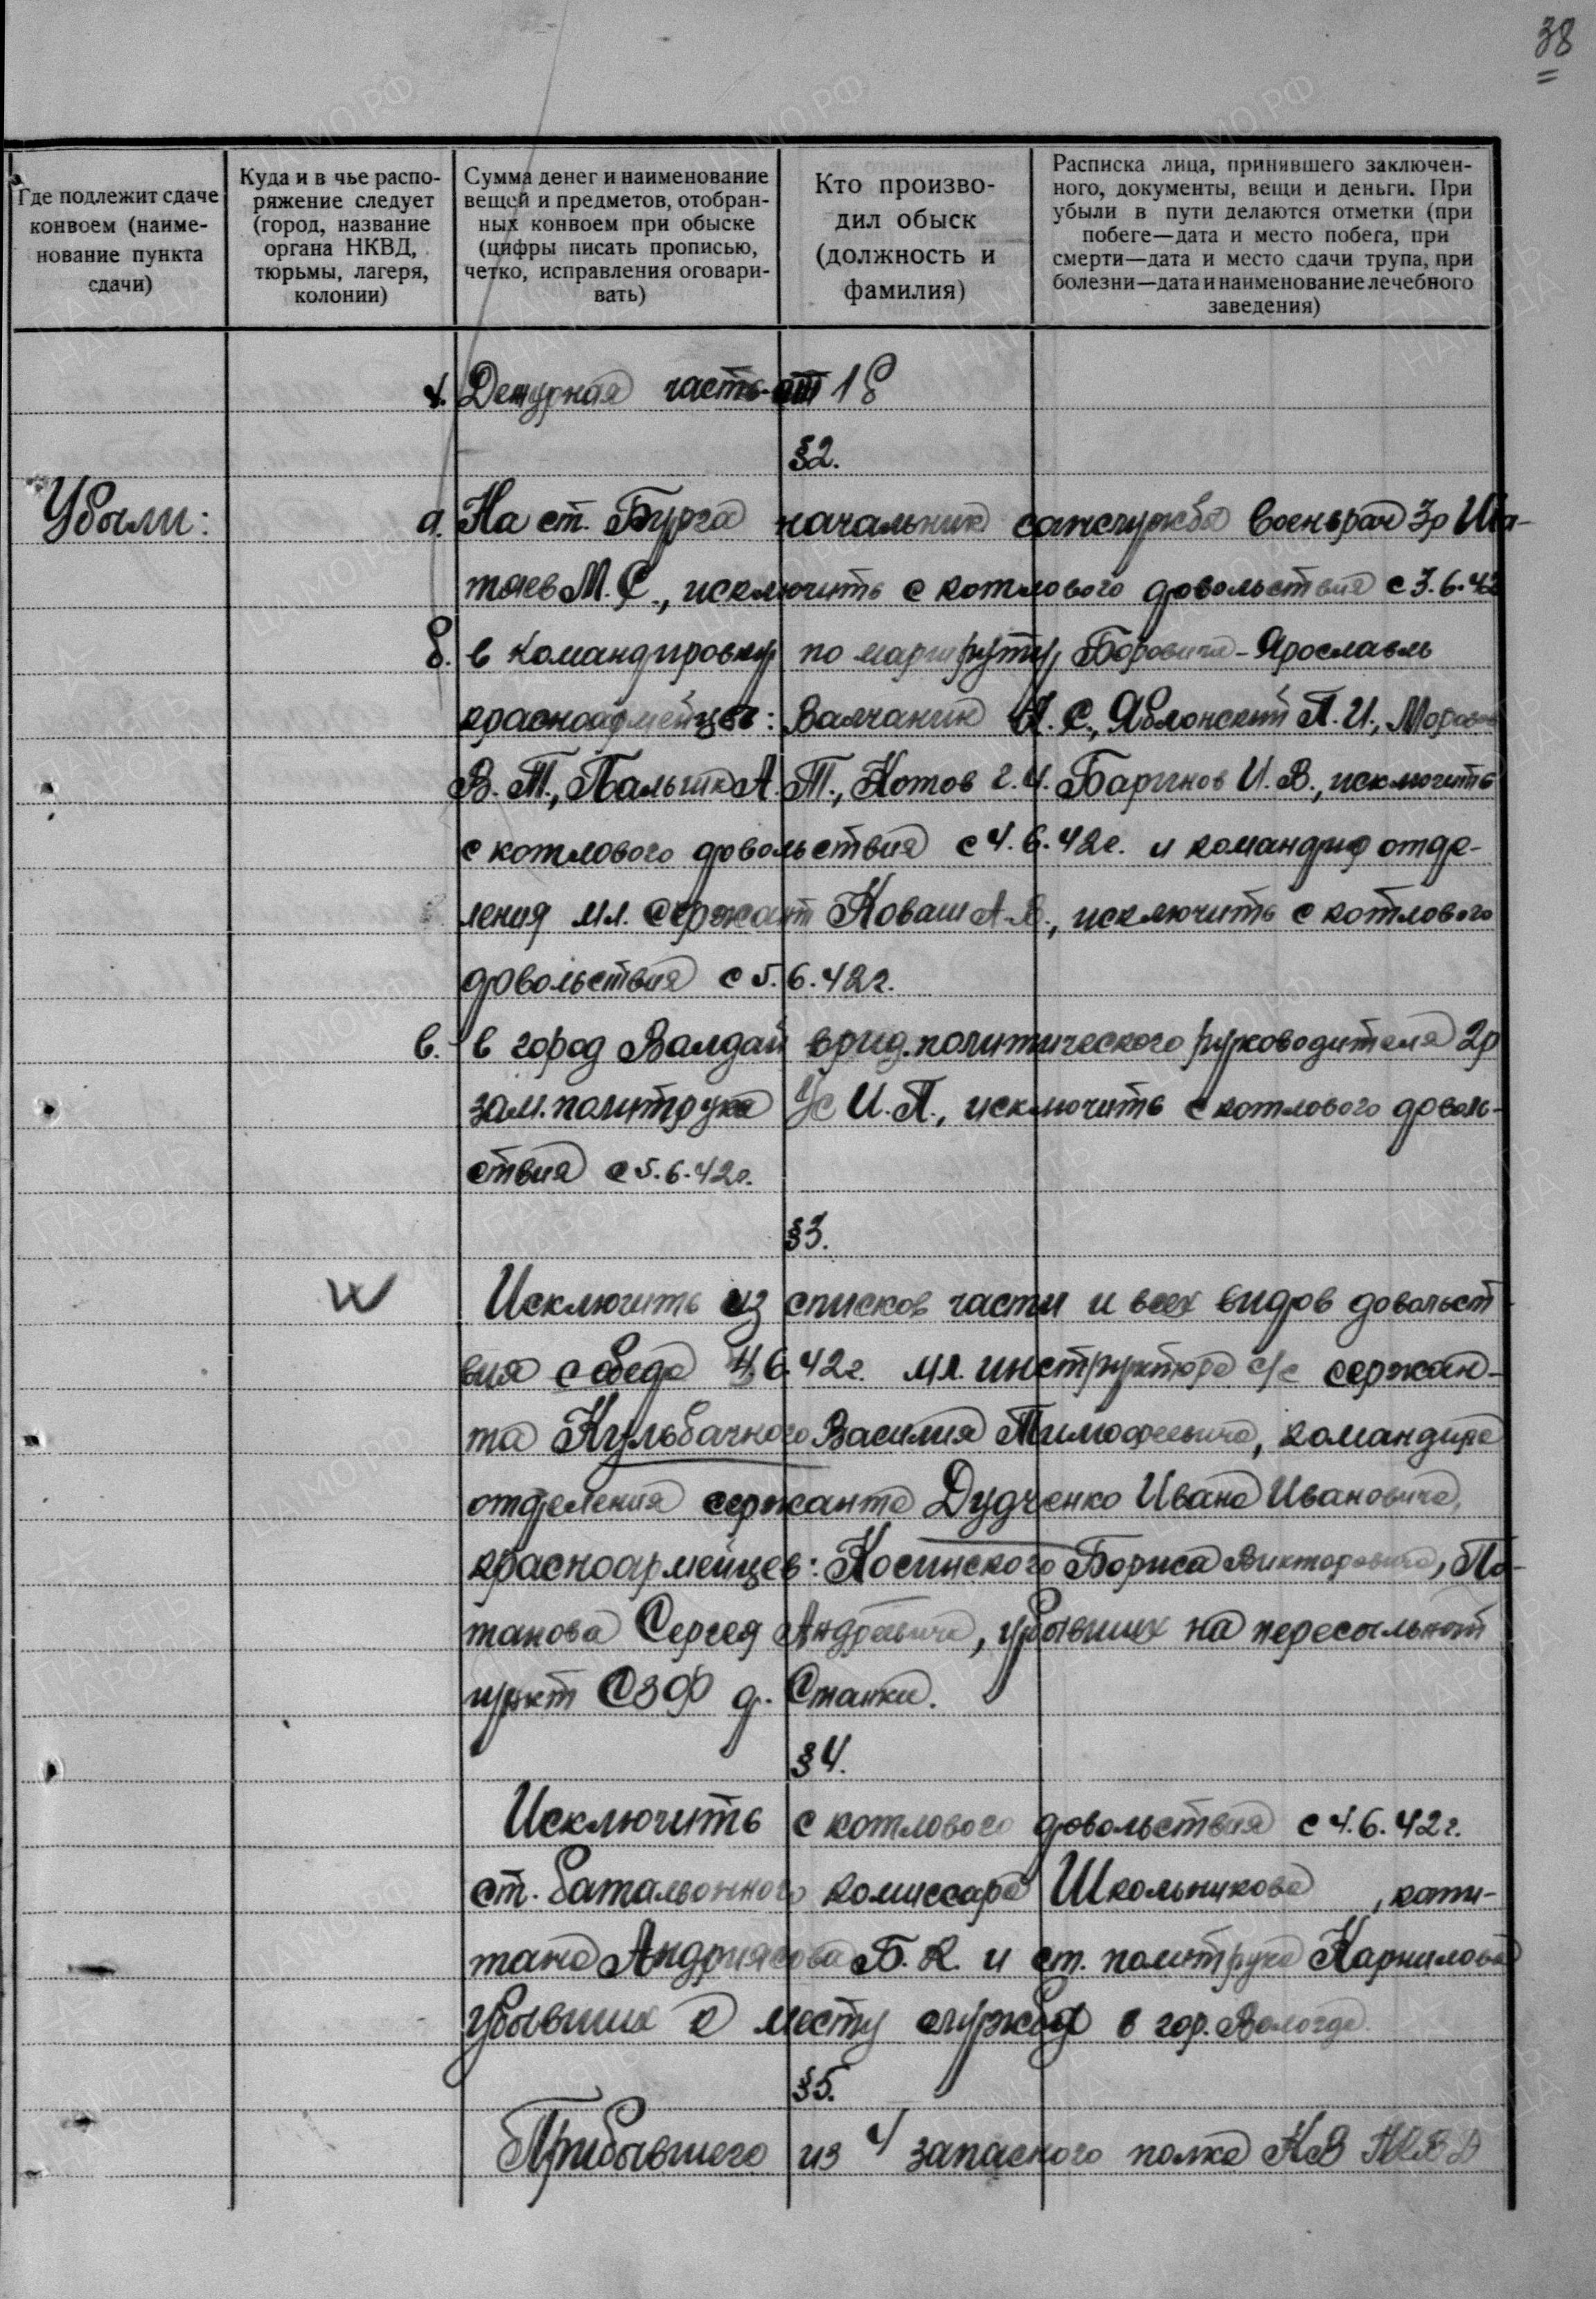 38
Где подлежит сдаче
конвоем (наиме-
нование пункта
сдачи)
Куда и в чье распо-
ряжение следует
(город, название
органа НКВД,
тюрьмы, лагеря,
колонии)
Сумма денег и наименование
вещей и предметов, отобран-
ных конвоем при обыске
(цифры писать прописью,
четко, исправления оговари-
вать)
Кто произво-
дил обыск
(должность и
фамилия)
Расписка лица, принявшего заключен-
ного, документы, вещи и деньги. При
убыли в пути делаются отметки (при
побеге—дата и место побега, при
смерти—дата и место сдачи трупа, при
болезни—дата и наименование лечебного
заведения)
Дежурная часть от
§2.
Убыли: а. На ст. Бурга начальник санслужбы военврач 3р Ша-
таев М. С., исключить с котлового довольствия с 3.6.42
б. в командировку по маршруту Боровичи-Ярославль
красноармейцы: Валчанин А. С., Яблонский П. И., Морозов
В. Т., Пальчик А. Т., Котов г. И. Баринов И. В., исключить
с котлового довольствия с 4.6.42г. и командир отде-
ления мл. сержант Коваш А. В., исключить с котлового
довольствия с 5.6.42г.
в. в город Валдай врид. политического руководителя 2р
зам. политрука Ус И. П., исключить с котлового доволь-
ствия с 5.6.42г.
§3.
Исключить из списков части и всех видов довольст-
вия с обеда 4.6.42г. мл. инструктора с/с сержан-
та Кульбачного Василия Тимофеевича, командира
отделения сержанта Дудченко Ивана Ивановича,
красноармейцев: Косинского Бориса Викторовича, По-
тапова Сергея Андреевича, убывших на пересыльный
пункт СЗФ д. Станки.
§4.
Исключить с котлового довольствия с 4.6.42г.
ст. батальонного комиссара Школьникова, капи-
тана Андриясова Б. К. и ст. политрука Карнилова
убывших к месту службы в гор. Вологда.
§5.
Прибывшего из 4 запасного полка КВ НКВД